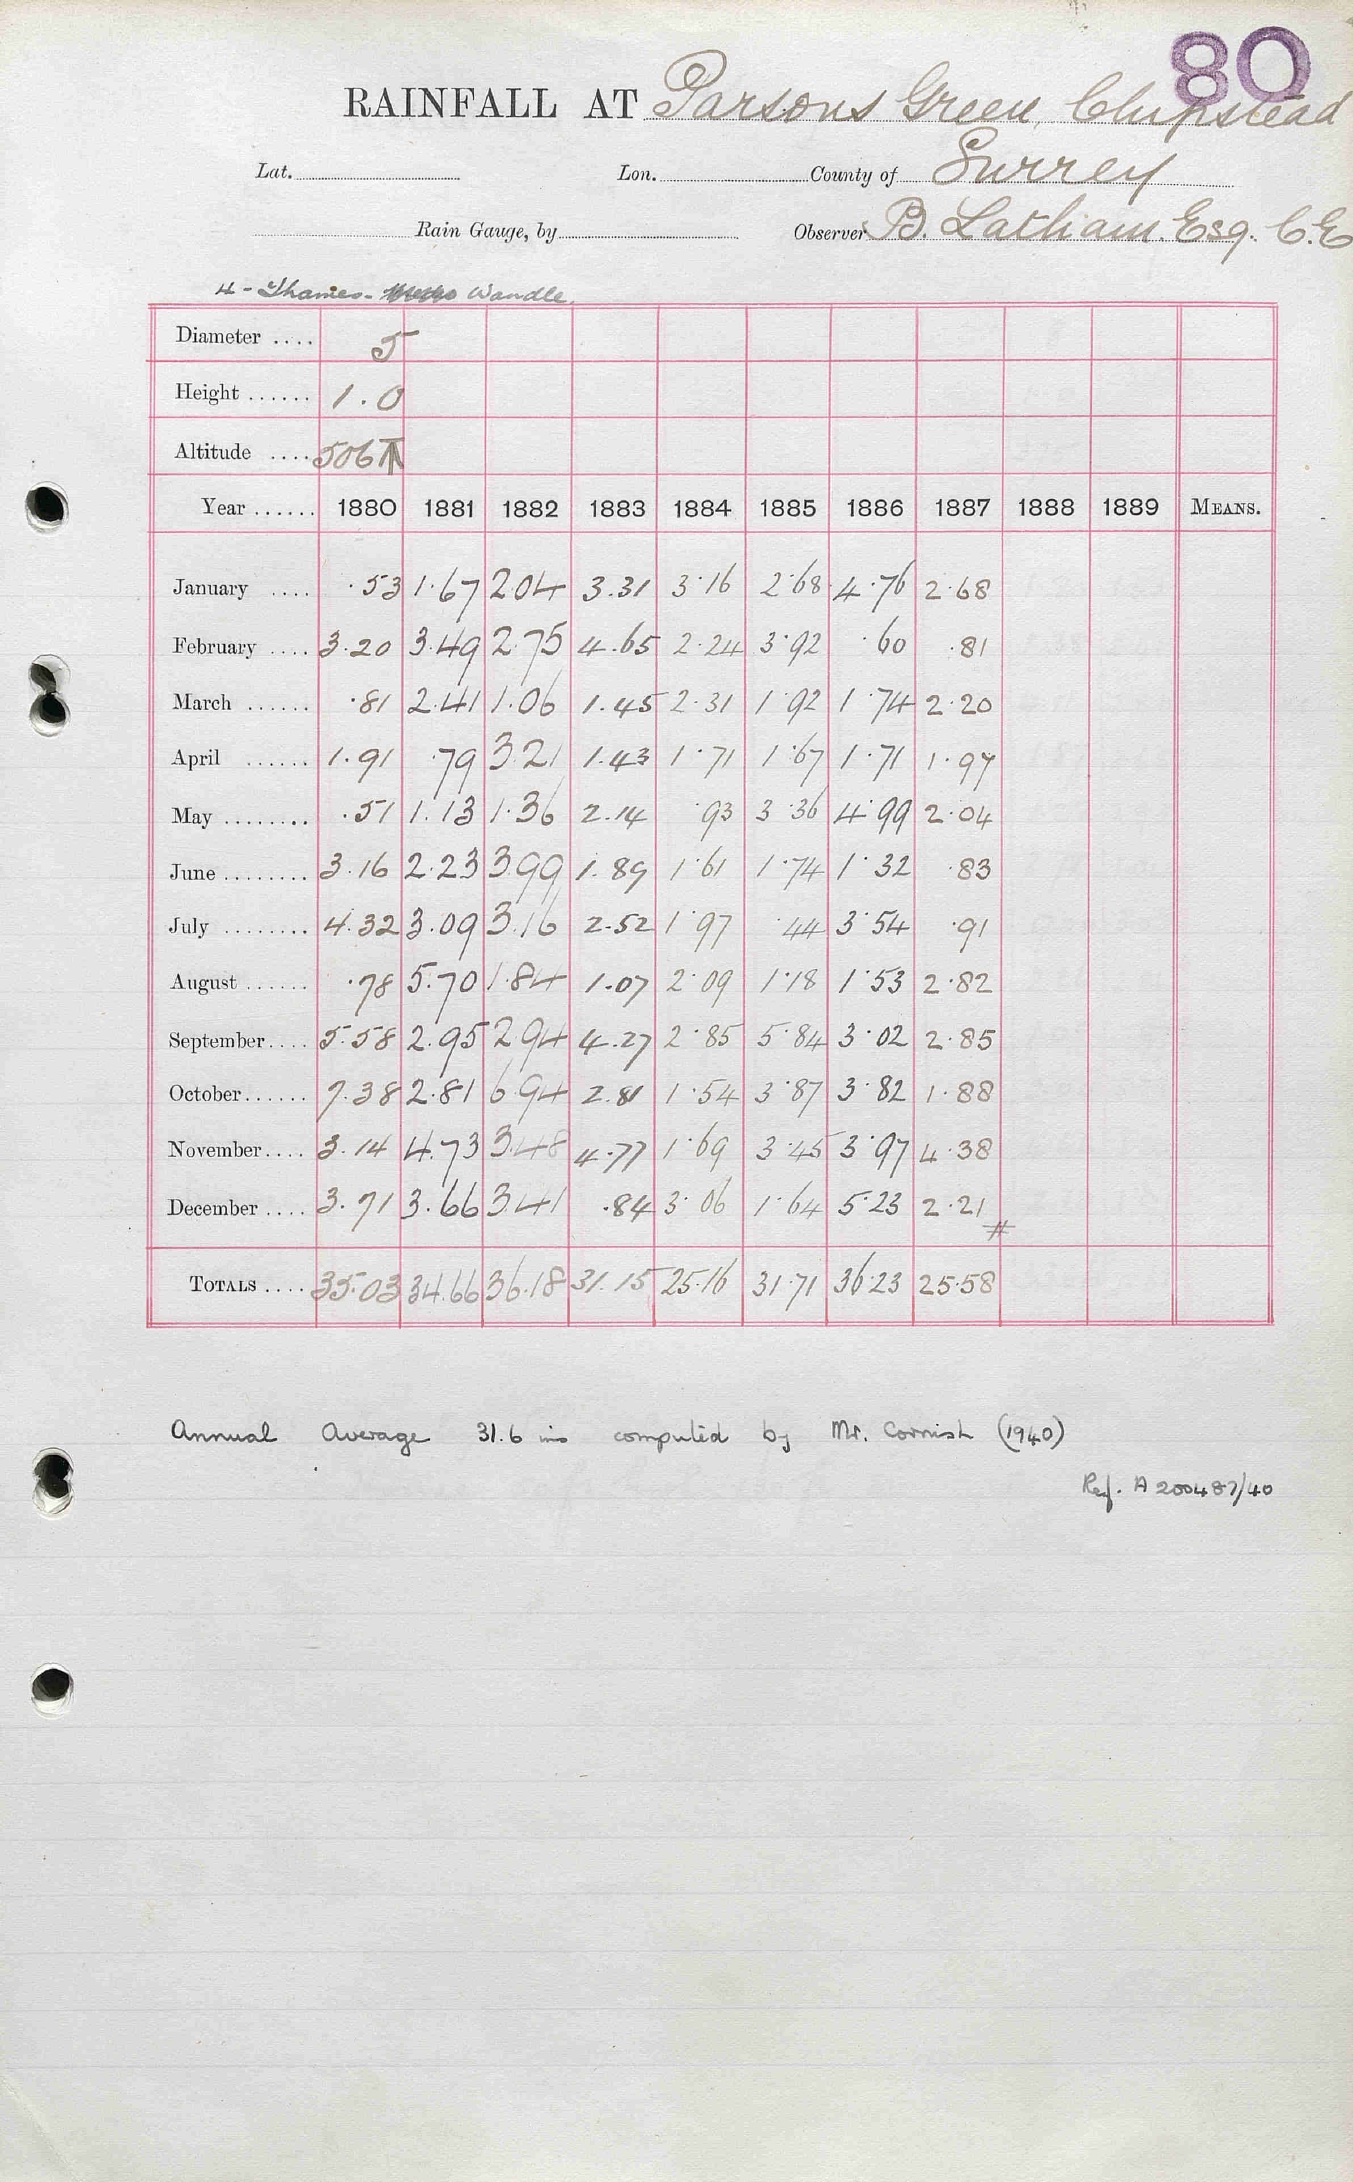 80
RAINFALL AT Parsons Green, Chipstead
Lat. Lon. County of Surrey
Rain Gauge, by Observer B. Latham. Esq. C.E
4 - Thames - Wandle.
Diameter .... 5
Height ...... 1.0
Altitude .... 506
Year ...... 1880 1881 1882 1883 1884 1885 1886 1887 1888 1889 MEANS.
January .... .53 1.67 2.04 3.31 3.16 2.68 4.76 2.68
February .... 3.20 3.49 2.75 4.65 2.24 3.92 .60 .81
March ...... .81 2.41 1.06 1.45 2.31 1.92 1.74 2.20
April ...... 1.91 .79 3.21 1.43 1.71 1.67 1.71 1.97
May ........ .51 1.13 1.36 2.14 .93 3.36 4.99 2.04
June ........ 3.16 2.23 3.99 1.89 1.61 1.74 1.32 .83
July ........ 4.32 3.09 3.16 2.52 1.97 .44 3.54 .91
August ...... .78 5.70 1.84 1.07 2.09 1.18 1.53 2.82
September.... 5.58 2.95 2.94 4.27 2.85 5.84 3.02 2.85
October...... 7.38 2.81 6.94 2.81 1.54 3.87 3.82 1.88
November.... 3.14 4.73 3.48 4.77 1.69 3.45 3.97 4.38
December .... 3.71 3.66 3.41 .84 3.06 1.64 5.23 2.21 #
TOTALS .... 35.03 34.66 36.18 31.15 25.16 31.71 36.23 25.58
Annual Average 31.6 ins computed by Mr. Cornish (1940)
Ref. A 200487/40